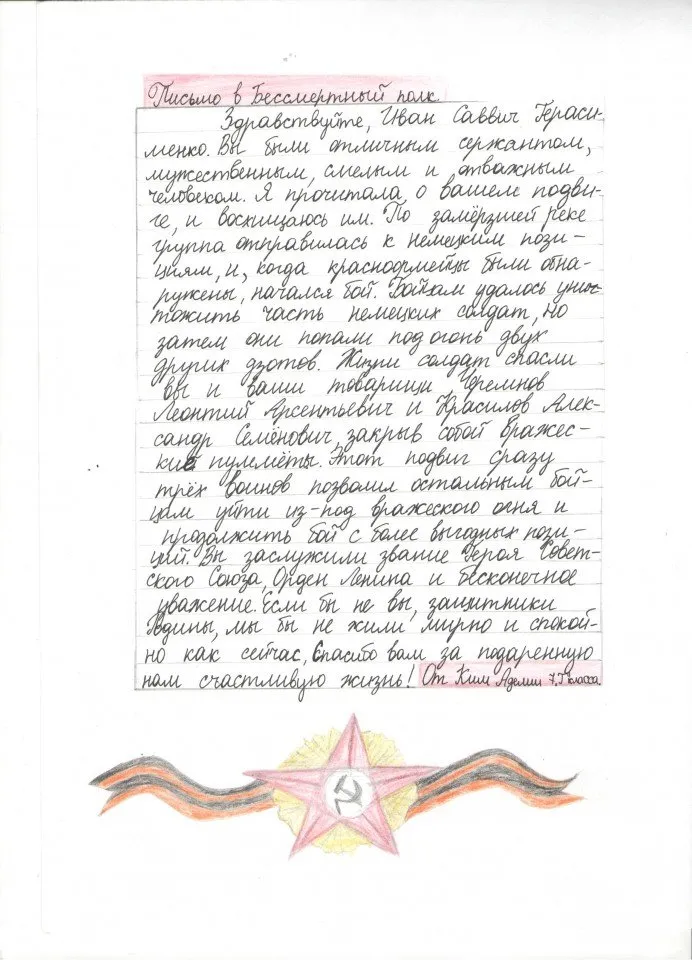 Письмо в Бессмертный полк.
Здравствуйте, Иван Саввич Гераси-
менко. Вы были отличным сержантом,
мужественным, смелым и отважным
человеком. Я прочитала о вашем подви-
ге, и восхищаюсь им. По замёрзшей реке
группа отправилась к немецким пози-
циям, и, когда красноармейцы были обна-
ружены, начался бой. Бойцам удалось унич-
тожить часть немецких солдат, но
затем они попали под огонь двух
других дзотов. Жизни солдат спасли
вы и ваши товарищи Черемнов
Леонтий Арсентьевич и Красилов Алек-
сандр Семёнович, закрыв собой вражес-
кие пулемёты. Этот подвиг сразу
трёх воинов позволил остальным бой-
цам уйти из-под вражеского огня и
продолжить бой с более выгодных пози-
ций. Вы заслужили звание Героя Совет-
ского Союза, Орден Ленина и бесконечное
уважение. Если бы не вы, защитники
Родины, мы бы не жили мирно и спокой-
но как сейчас, Спасибо вам за подаренную
нам счастливую жизнь! От Ким Аделии 7"Г"класса.